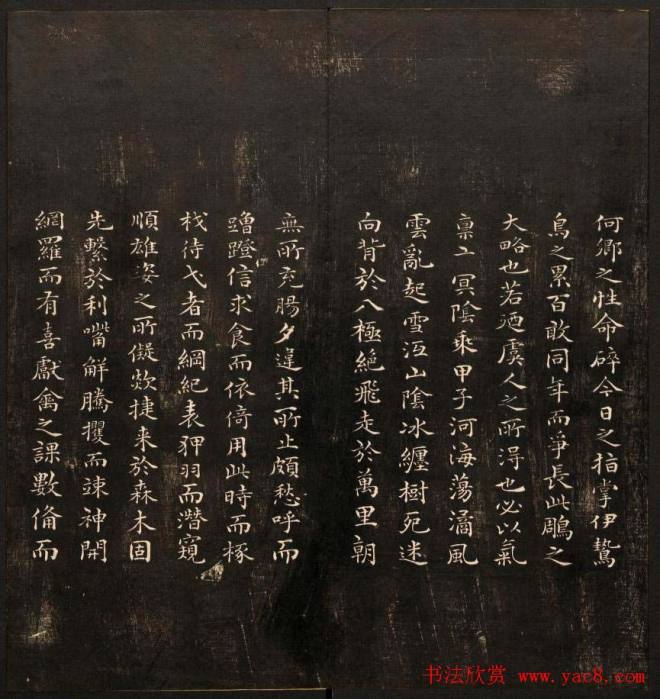 何鄉之性命碎今日之指掌伊鷙
鳥之累百敢同年而爭長此鵰之
大略也若迺虞人之所得也必以氣
稟玄冥陰乘甲子河海蕩潏風
雲亂起雪沍山陰冰纏樹死迷
向背於八極絕飛走於萬里朝
無所充腸夕違其所止頗愁呼而
蹭蹬信求食而依倚用此時而椓
杙待弋者而綱紀表狎羽而潛窺
順雄姿之所儗欻捷来於森木固
先繫於利嘴解騰攫而竦神開
網羅而有喜獻禽之課數備而
书法欣赏 www.yac8.com